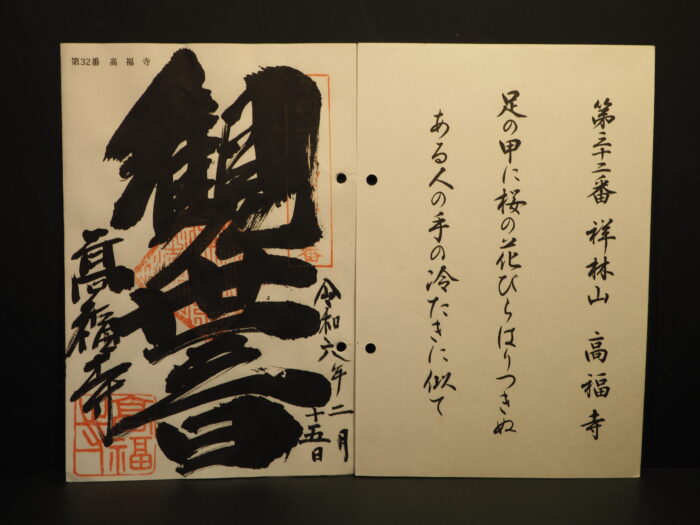 第三十二番 祥林山 高福寺
足の甲に桜の花びらはりつきぬ
ある人の手の冷たきに似て
第32番 高福寺
令和六年二月
十五日
観世音
高福寺
高福寺